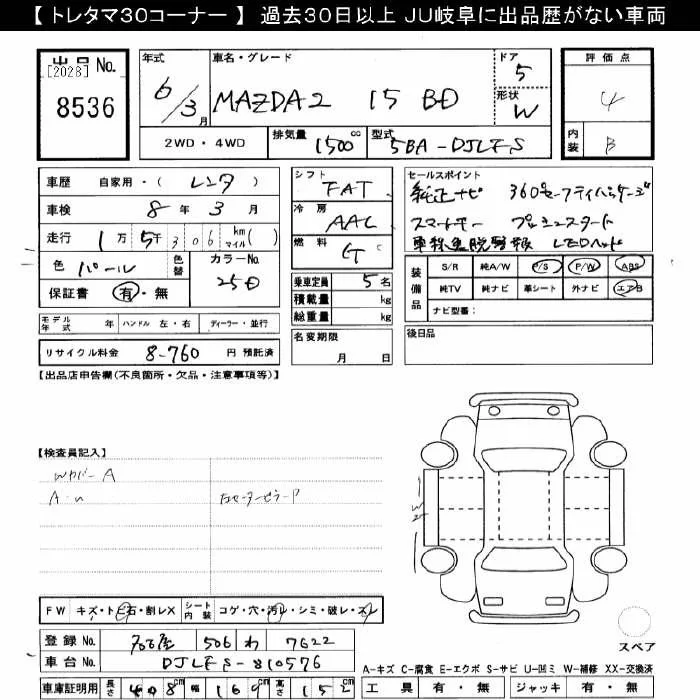 【 トレタマ30コーナー 】 過去30日以上 JU岐阜に出品歴がない車両
出品 No.
[2028]
8536
年式
6/3月
車名・グレード
MAZDA2 15 BD
ドア
5
形状
W
2WD・4WD
排気量 1500 cc
型式 5BA-DJLFS
評価点
4
内装
B
車歴 自家用・( レンタ )
車検 8 年 3 月
走行 1万 5千 306 km マイル ( )
色 パール
色替
カラーNo.
25D
保証書 有・無
シフト
FAT
冷房
AAC
燃料
G
乗車定員 5 名
積載量 kg
総重量 kg
セールスポイント
純正ナビ 360セーフティパッケージ
スマートキー プッシュスタート
車線逸脱警報 LEDヘッド
装備品
S/R 純A/W P/S P/W ABS
純TV 純ナビ 革シート 外ナビ エアB
ナビ型番:
モデル年式 年 ハンドル 左・右 ディーラー・並行
リサイクル料金 8-760 円 預託済
名変期限
月 日
後日品
【出品店申告欄(不良箇所・欠品・注意事項等)】
【検査員記入】
Wカバー A
A・U
FW キズ・トビ石・割レX
シート内装 コゲ・穴・汚レ・シミ・破レ・スレ
登録 No. 名古屋 506 わ 7622
車台 No. DJLFS-810576
車庫証明用 長さ 408cm 幅 169cm 高さ 152cm
スペア
A-キズ C-腐食 E-エクボ S-サビ U-凹ミ W-補修 XX-交換済
工具 有・無 ジャッキ 有・無